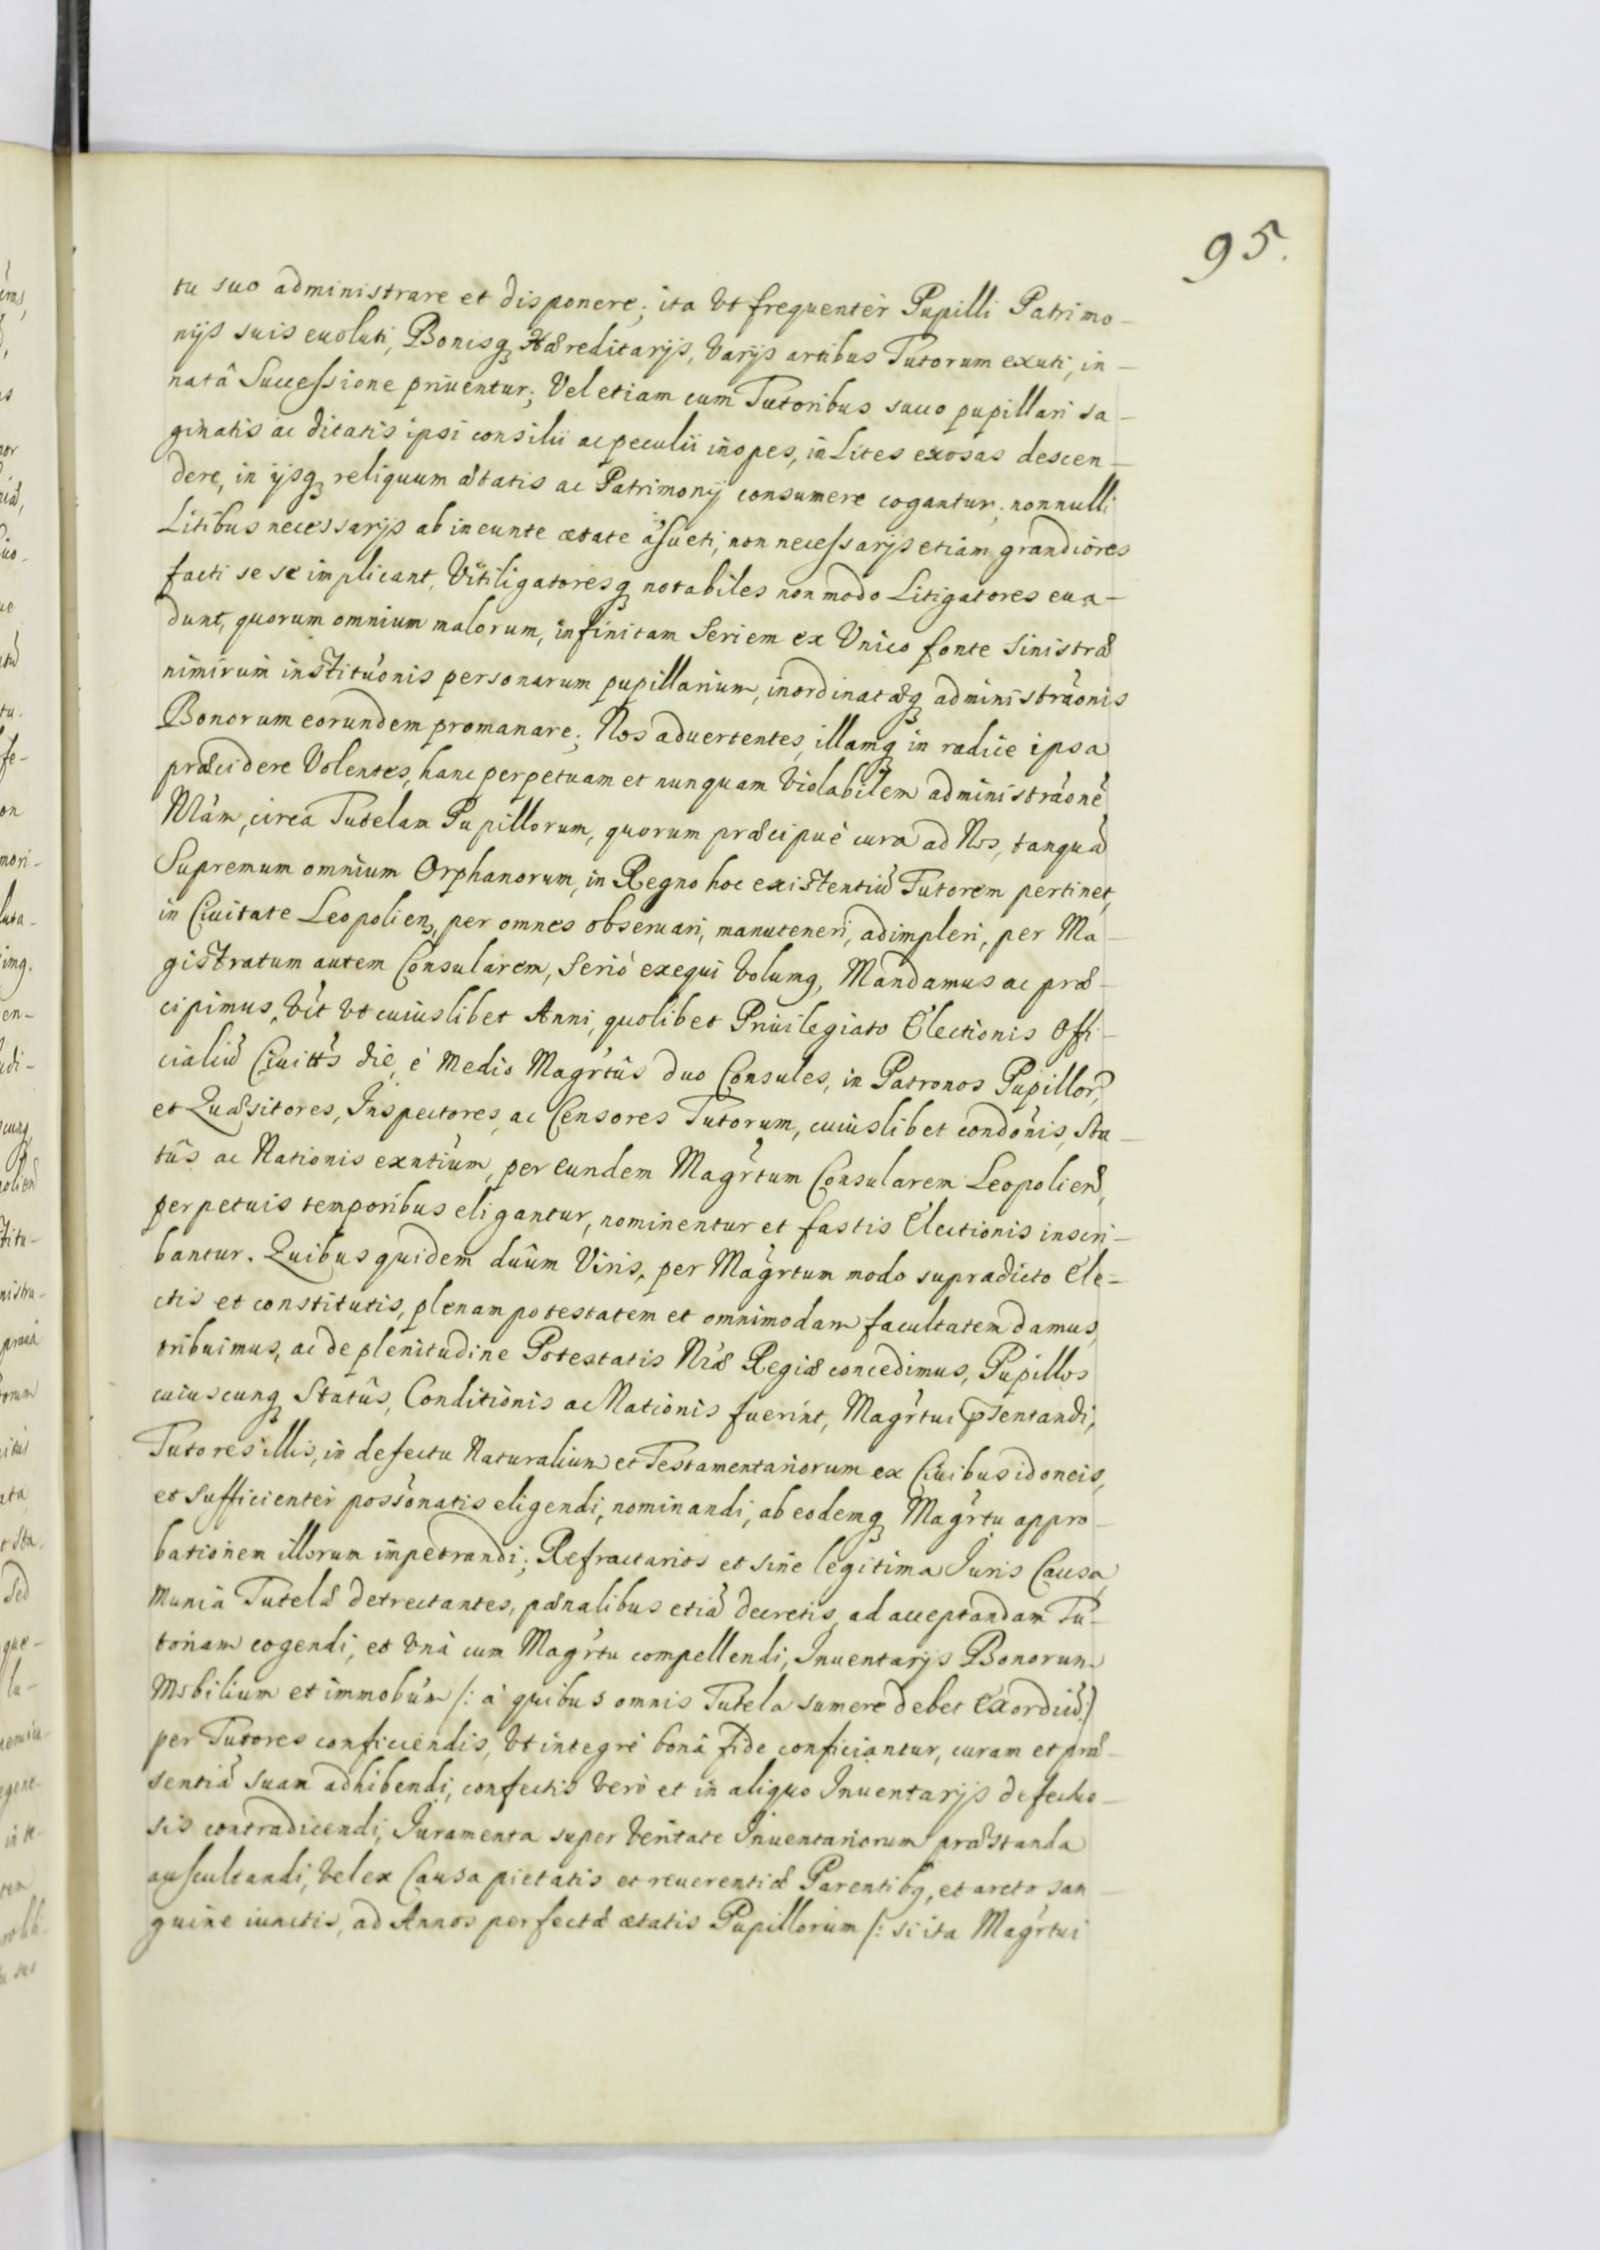 95.
tu suo administrare et disponere; ita Vt frequentèr Pupilli Patrimo-
nijs suis euoluti, Bonisq Hæreditarijs, Varijs artibus Tutorum exuti, in-
natâ Successione priuentur; Vel etiam cum Tutoribus succo pupillari sa-
ginatis ac ditatis ipsi consilii ac peculii inopes, in Lites exosas descen-
dere, in ijsq reliquum ætatis ac Patrimonij consumere cogantur; nonnulli
Litibus necessarijs ab ineunte ætate assueti, non necessarijs etiam grandiores
facti sese implicant, Vitiligatoresq notabiles non modo Litigatores eua-
dunt, quorum omnium malorum, infinitam Seriem ex Vnico fonte sinistræ
nimirum instituonis personarum pupillarium, inordinatæq administraonis
Bonorum eorundem promanare; Nos aduertentes, illamq in radice ipsa
præcidere Volentes, hanc perpetuam et nunquam Violabilem administraonē
Nrām, circa Tutelam Pupillorum, quorum præcipuè cura ad Nos, tanquā
Supremum omnium Orphanorum, in Regno hoc existentiū Tutorem pertinet,
in Ciuitate Leopolien, per omnes obseruari, manuteneri, adimpleri, per Ma-
gistratum autem Consularem, seriò exequi Volumq, Mandamus ac præ-
cipimus, Vtt Vt cuiuslibet Anni, quolibet Priuilegiato Electionis Offi-
cialiū Ciuitt̄s die, è medio Magr̄tûs duo Consules, in Patronos Pupillor,
et Quæsitores, Inspectores, ac Censores Tutorum, cuiuslibet condōnis, Sta-
tûs ac Nationis exn̄tium, per eundem Magr̄tum Consularem Leopolien,
perpetuis temporibus eligantur, nominentur et fastis Electionis inscri-
bantur. Quibus quidem duûm Viris, per Magr̄tum modo supradicto Ele-
ctis et constitutis, plenam potestatem et omnimodam facultatem damus,
tribuimus, ac de plenitudine Potestatis Nr̄æ Regiæ concedimus, Pupillos
cuiuscunq Statûs, Conditionis ac Nationis fuerint, Magr̄tui pr̄sentandi,
Tutores illis, in defectu Naturalium et Testamentariorum ex Ciuibus idoneis,
et sufficientèr possōnatis eligendi, nominandi, ab eodemq Magr̄tu appro-
bationem illorum impetrandi; Refractarios et sine legitima Iuris Causa,
munia Tutelæ detrectantes, pænalibus etiā decretis, ad acceptandam Tu-
toriam cogendi, et Vnà cum Magr̄tu compellendi, Inuentarijs Bonorum
Mobilium et immobūm /: à quibus omnis Tutela sumere debet Exordiū:/
per Tutores conficiendis, Vt integrè bonâ fide conficiantur, curam et præ-
sentiā suam adhibendi, confectis Verò et in aliquo Inuentarijs defectuo-
sis contradicendi, Iuramenta super Veritate Inuentariorum præstanda
auscultandi, Vel ex Causa pietatis et reuerentiæ Parentibq, et arcto san-
guine iunctis, ad Annos perfectæ ætatis Pupillorum /: si ita Magr̄tui